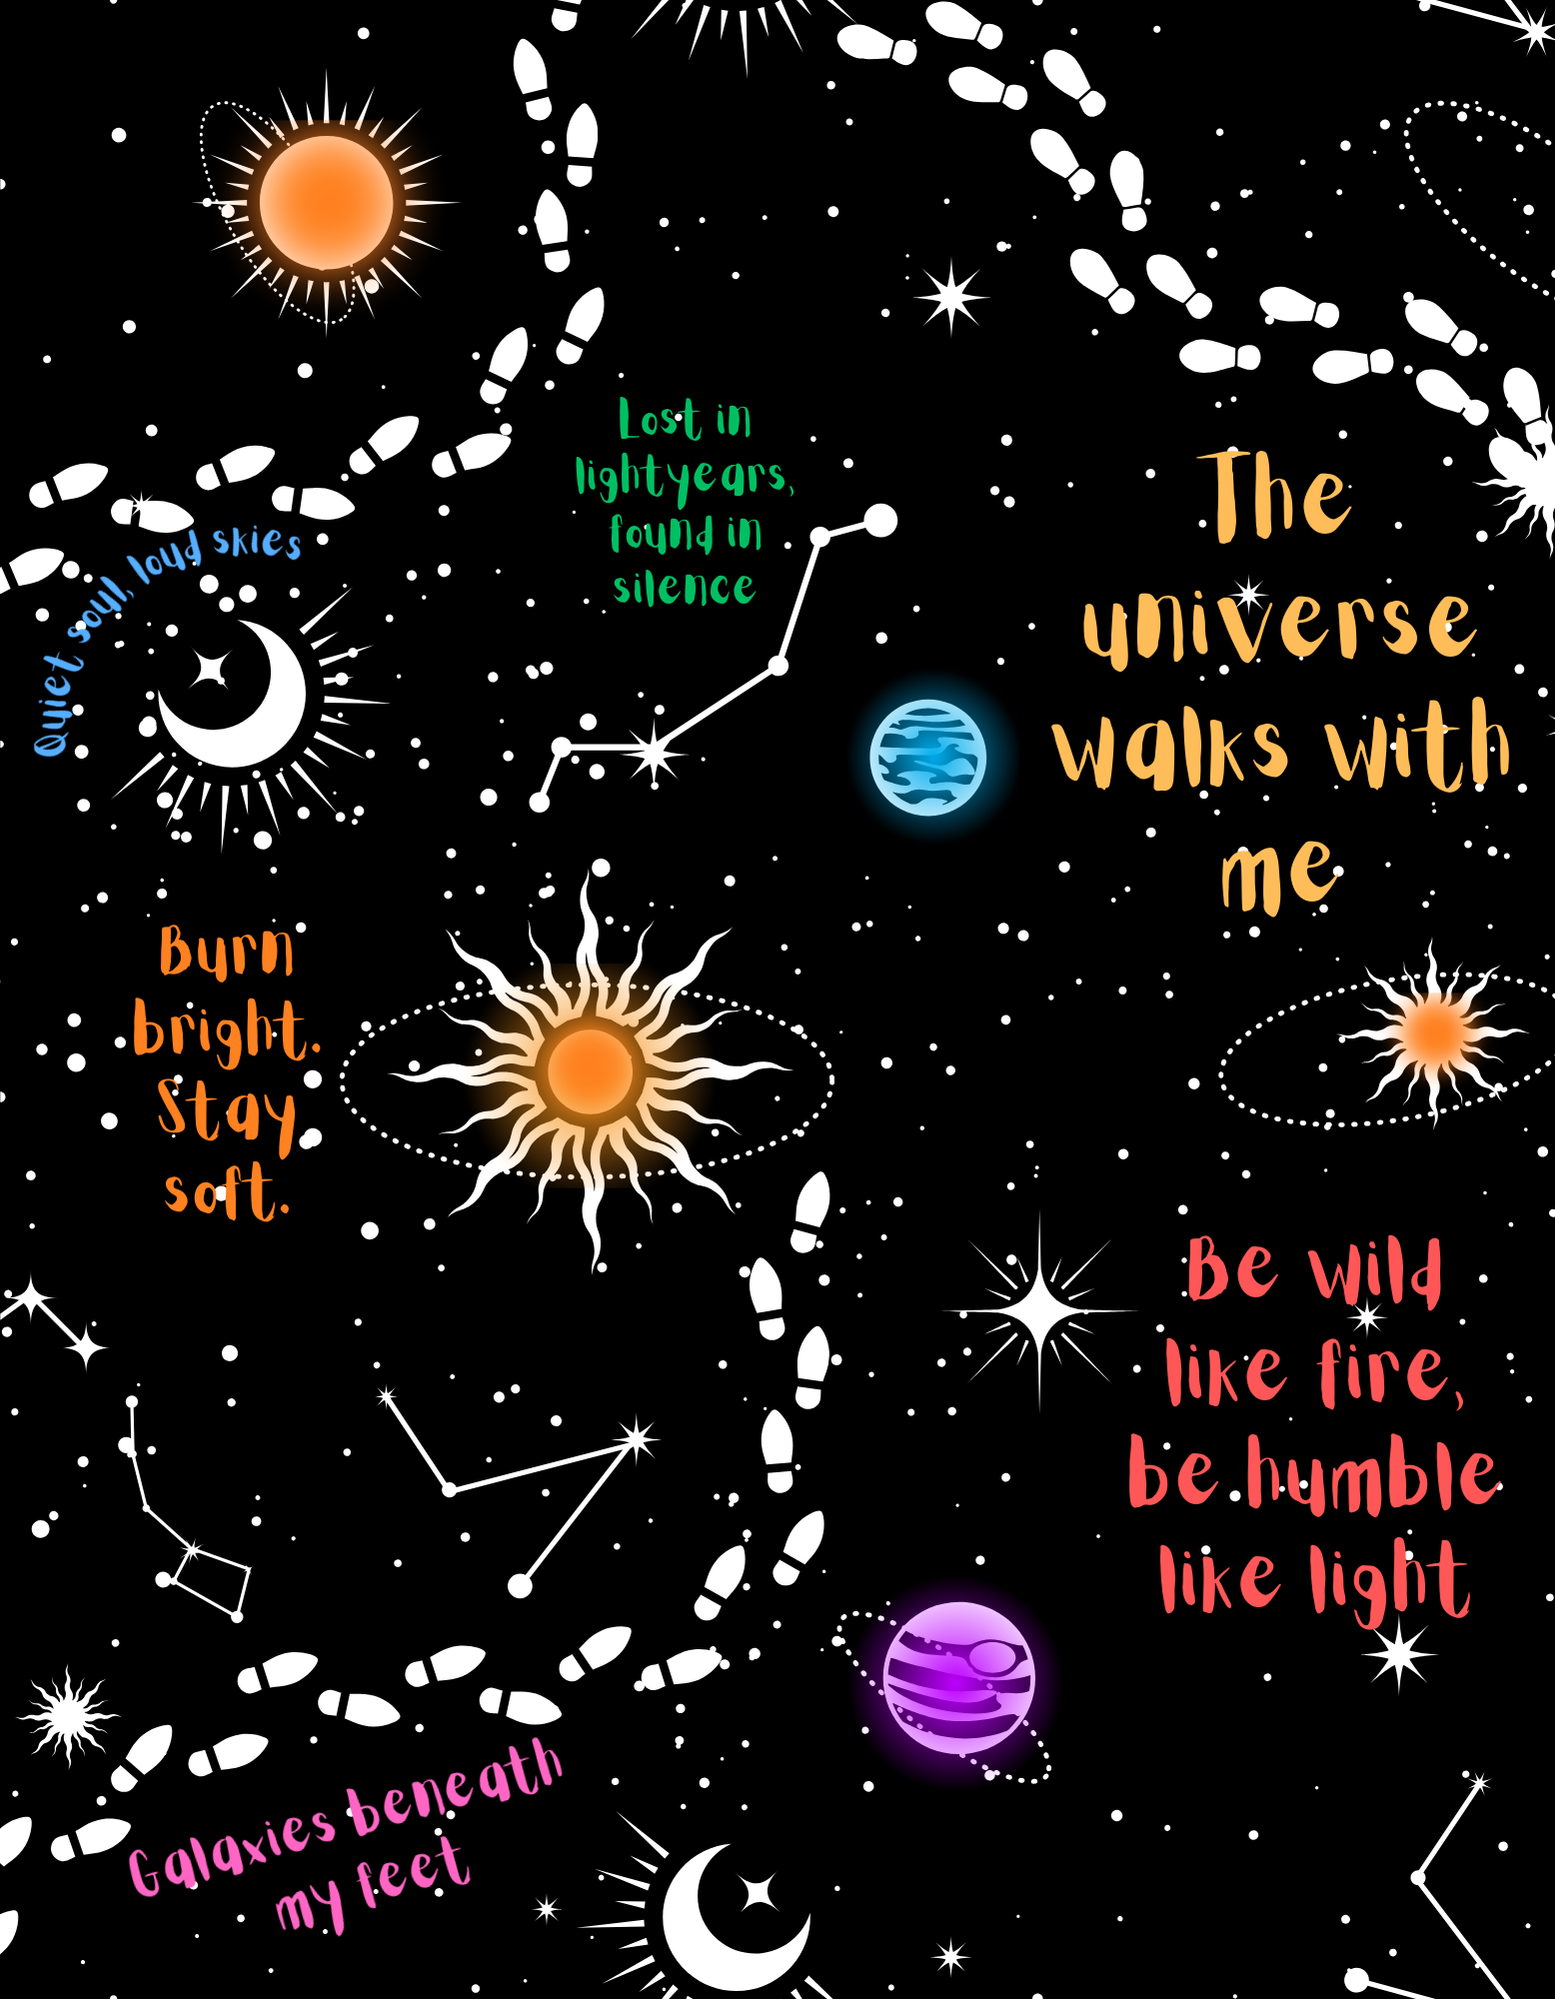 Lost in
lightyears,
found in
silence
The
universe
walks with
me
Quiet soul, loud skies
Burn
bright.
Stay
soft.
Be wild
like fire,
be humble
like light
Galaxies beneath
my feet